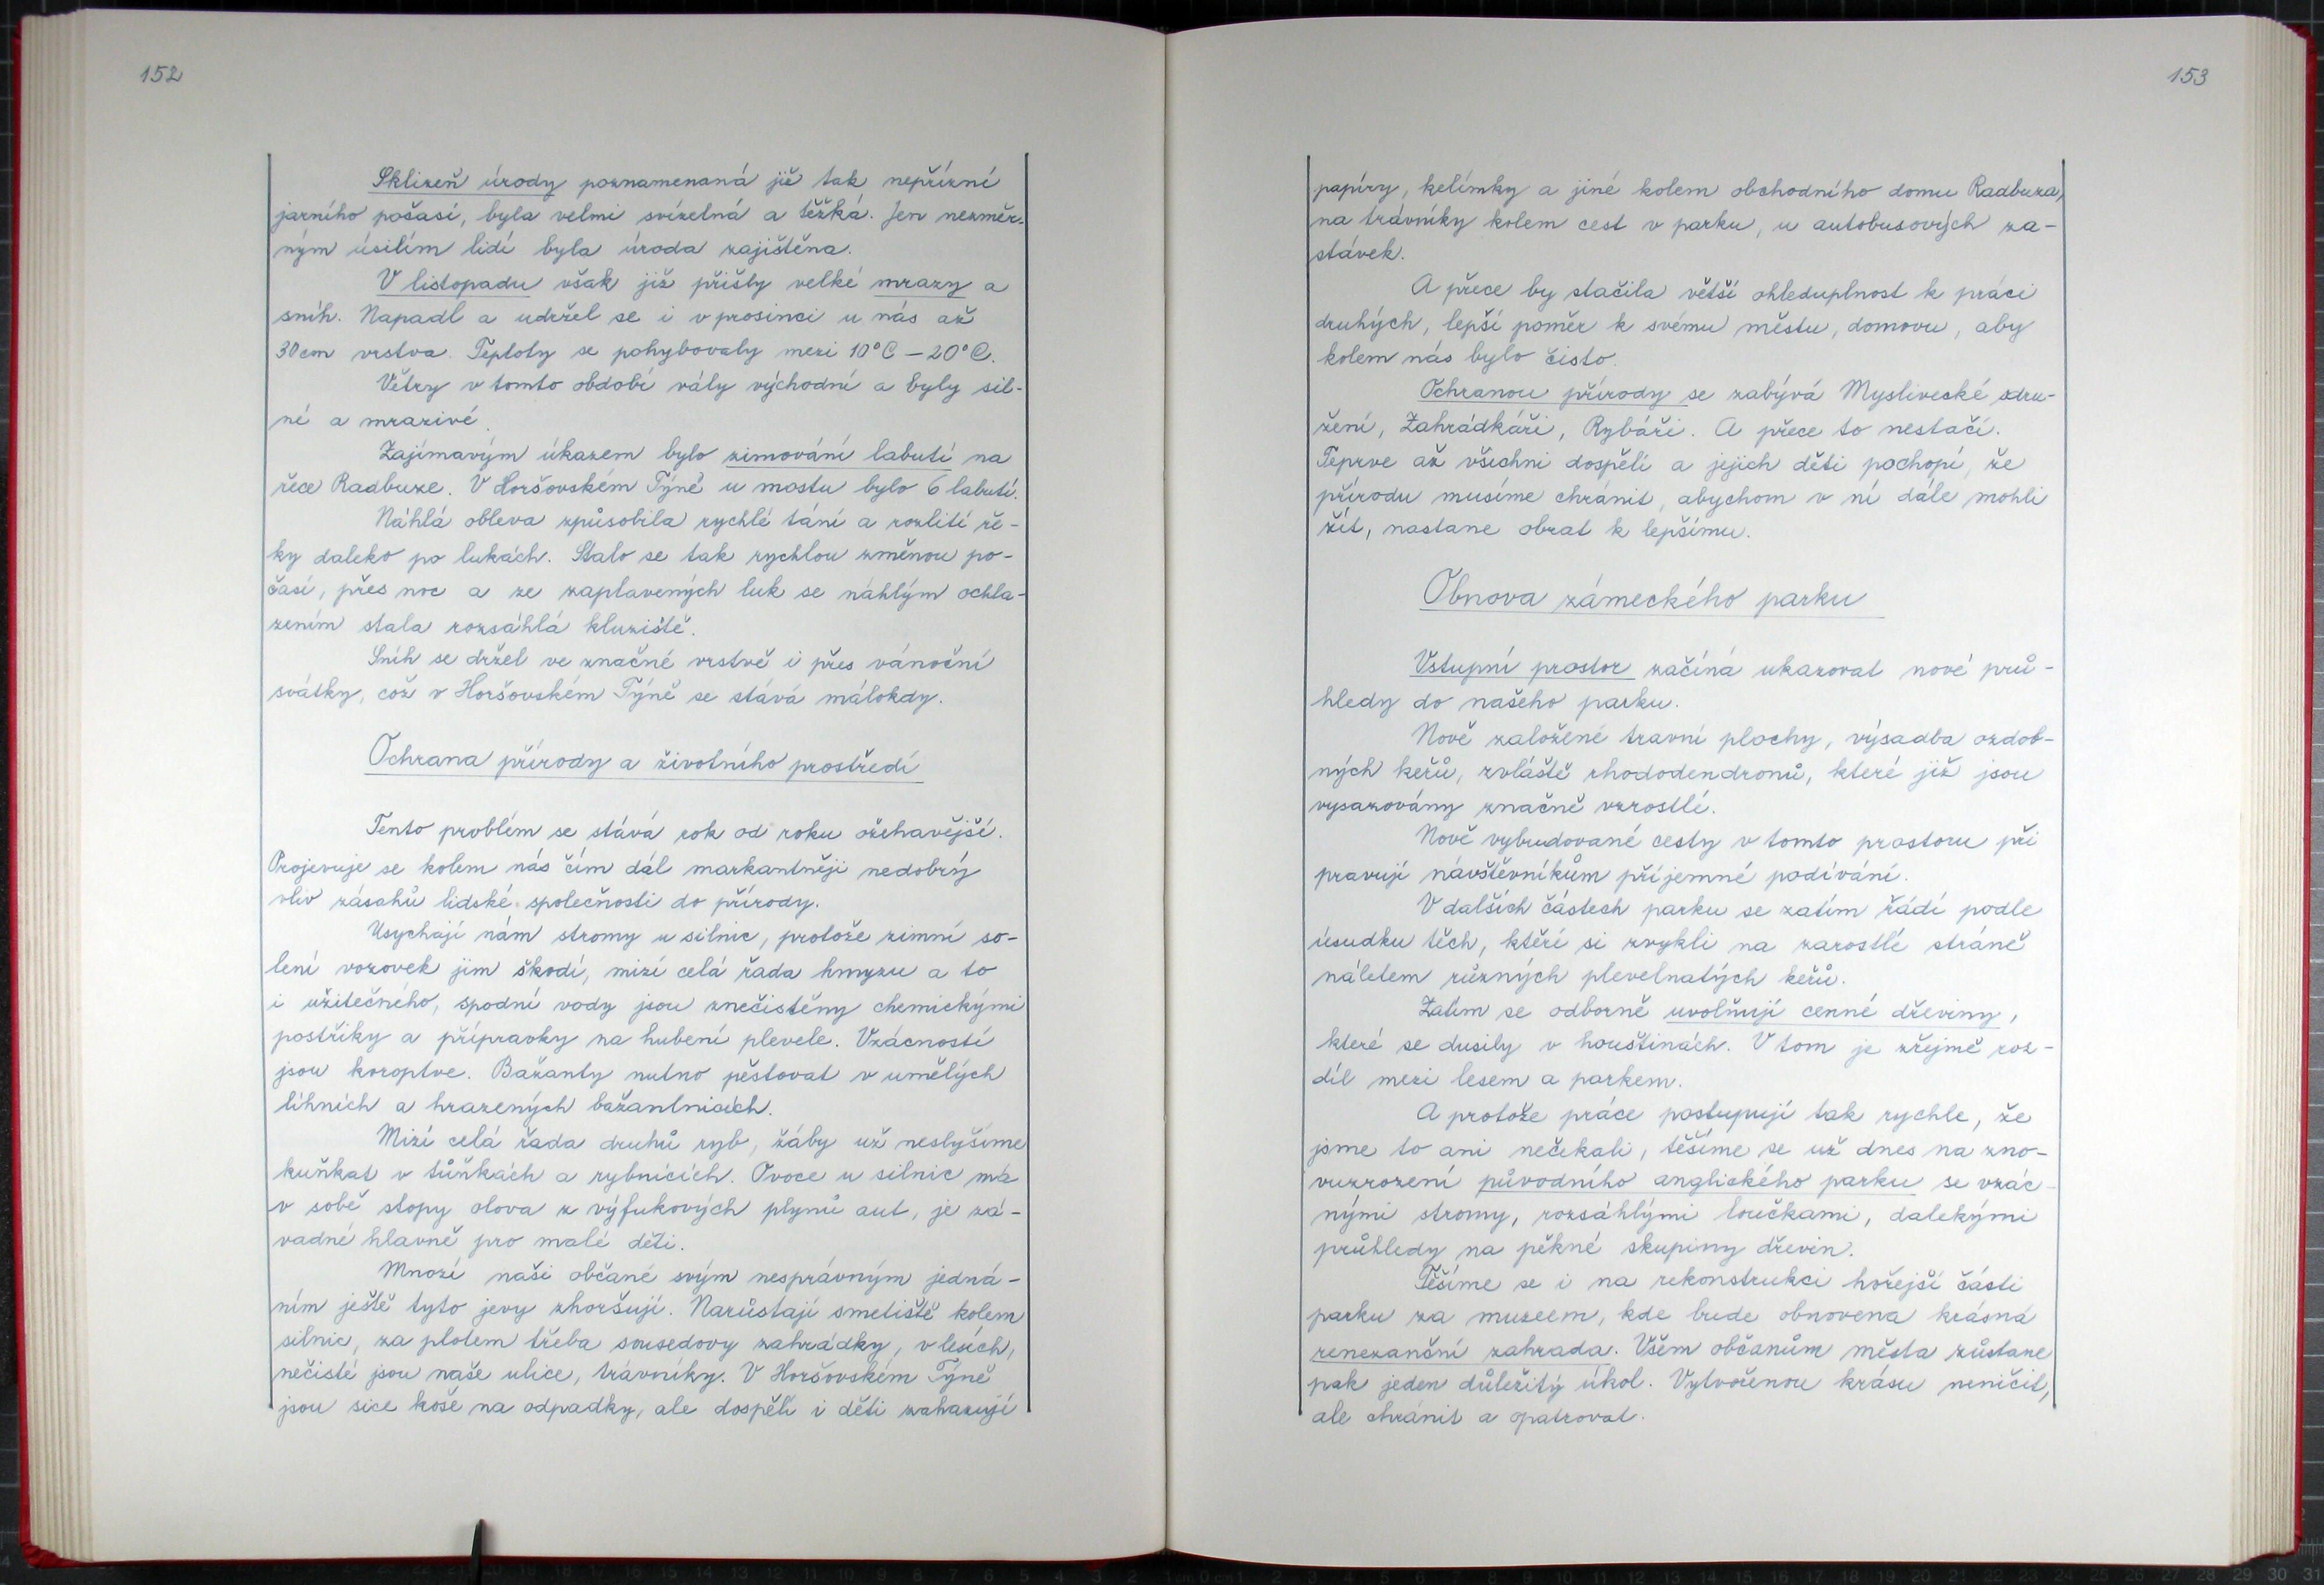 152
Sklizeň úrody poznamenaná již tak nepřízní
jarního pošasí, byla velmi svízelná a těžká. Jen nezměr-
ným úsilím lidí byla úroda zajištěna.
V listopadu však již přišly velké mrazy a
sníh. Napadl a udržel se i v prosinci u nás až
30 cm vrstva. Teploty se pohybovaly mezi 10°C – 20°C.
Větry v tomto období vály východní a byly sil-
né a mrazivé.
Zajímavým úkazem bylo zimování labutí na
řece Radbuze. V Horšovském Týně u mostu bylo 6 labutí.
Náhlá obleva způsobila rychlé tání a rozlití ře-
ky daleko po lukách. Stalo se tak rychlou změnou po-
časí, přes noc a ze zaplavených luk se náhlým ochla-
zením stala rozsáhlá kluziště.
Sníh se držel ve značné vrstvě i přes vánoční
svátky, což v Horšovském Týně se stává málokdy.
Ochrana přírody a životního prostředí
Tento problém se stává rok od roku ožehavější.
Projevuje se kolem nás čím dál markantněji nedobrý
vliv zásahů lidské společnosti do přírody.
Usychají nám stromy u silnic, protože zimní so-
lení vozovek jim škodí, mizí celá řada hmyzu a to
i užitečného, spodní vody jsou znečistěny chemickými
postřiky a přípravky na hubení plevele. Vzácností
jsou koroptve. Bažanty nutno pěstovat v umělých
líhních a hrazených bažantnicích.
Mizí celá řada druhů ryb, žáby už neslyšíme
kuňkat v tůňkách a rybnících. Ovoce u silnic má
v sobě stopy olova z výfukových plynů aut, je zá-
vadné hlavně pro malé děti.
Mnozí naši občané svým nesprávným jedná-
ním ještě tyto jevy zhoršují. Narůstají smetiště kolem
silnic, za plotem třeba sousedovy zahrádky, v lesích,
nečisté jsou naše ulice, trávníky. V Horšovském Týně
jsou sice koše na odpadky, ale dospělí i děti zahazují
153
papíry, kelímky a jiné kolem obchodního domu Radbuza,
na trávníky kolem cest v parku, u autobusových za-
stávek.
A přece by stačila větší ohleduplnost k práci
druhých, lepší poměr k svému městu, domovu, aby
kolem nás bylo čisto.
Ochranou přírody se zabývá Myslivecké sdru-
žení, Zahrádkáři, Rybáři. A přece to nestačí.
Teprve až všichni dospělí a jejich děti pochopí, že
přírodu musíme chránit, abychom v ní dále mohli
žít, nastane obrat k lepšímu.
Obnova zámeckého parku
Vstupní prostor začíná ukazovat nové prů-
hledy do našeho parku.
Nově založené travní plochy, výsadba ozdob-
ných keřů, zvláště rhododendronů, které již jsou
vysazovány značně vzrostlé.
Nově vybudované cesty v tomto prostoru při
pravují návštěvníkům příjemné podívání.
V dalších částech parku se zatím řádí podle
úsudku těch, kteří si zvykli na zarostlé stráně
náletem různých plevelnatých keřů.
Zatím se odborně uvolňují cenné dřeviny,
které se dusily v houštinách. V tom je zřejmě roz-
díl mezi lesem a parkem.
A protože práce postupují tak rychle, že
jsme to ani nečekali, těšíme se už dnes na zno-
vuzrození původního anglického parku se vzác-
nými stromy, rozsáhlými loučkami, dalekými
průhledy na pěkné skupiny dřevin.
Těšíme se i na rekonstrukci hořejší části
parku za muzeem, kde bude obnovena krásná
renezanční zahrada. Všem občanům města zůstane
pak jeden důležitý úkol. Vytvořenou krásu neničit,
ale chránit a opatrovat.